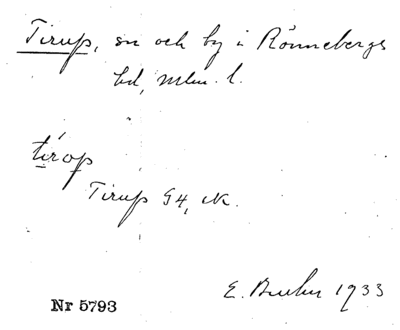 Tirup, sn och by i Rönnebergs
hd, Mlm. l.
tírop
Tirup G4, NK.
E. Bruhn 1933
Nr 5793